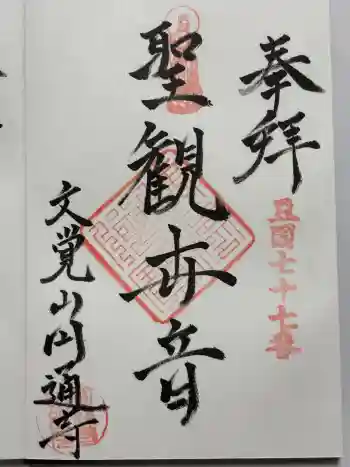 奉拝
五国七十七番
聖観世音
文覚山円通寺